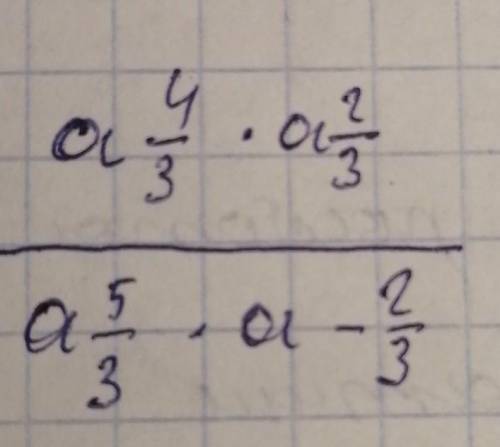 a 4/3 · a 2/3
a 5/3 · a - 2/3